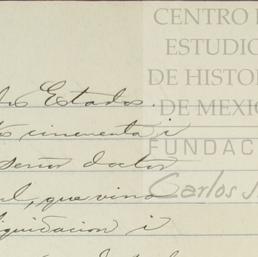 CENTRO
ESTUDIO
DE HISTO
DE MEXI
FUNDAC
Carlos
Estados.
cincuenta i
señor doctor
que vino
liquidacion i